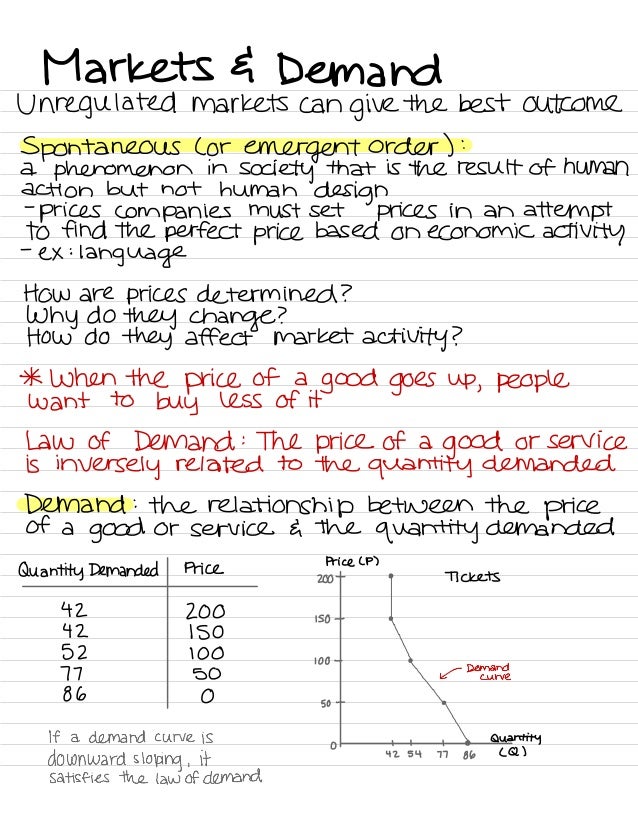 Markets & Demand
Unregulated markets can give the best outcome
Spontaneous (or emergent order):
a phenomenon in society that is the result of human
action but not human design
- prices companies must set prices in an attempt
to find the perfect price based on economic activity
- ex: language
How are prices determined?
Why do they change?
How do they affect market activity?
* When the price of a good goes up, people
want to buy less of it
Law of Demand: The price of a good or service
is inversely related to the quantity demanded
Demand: the relationship between the price
of a good or service & the quantity demanded
Quantity Demanded Price
42 200
42 150
52 100
77 50
86 0
If a demand curve is
downward sloping, it
satisfies the law of demand
Price (P)
Tickets
200
150
100
50
0
Demand
curve
42 54 77 86
Quantity
(Q)